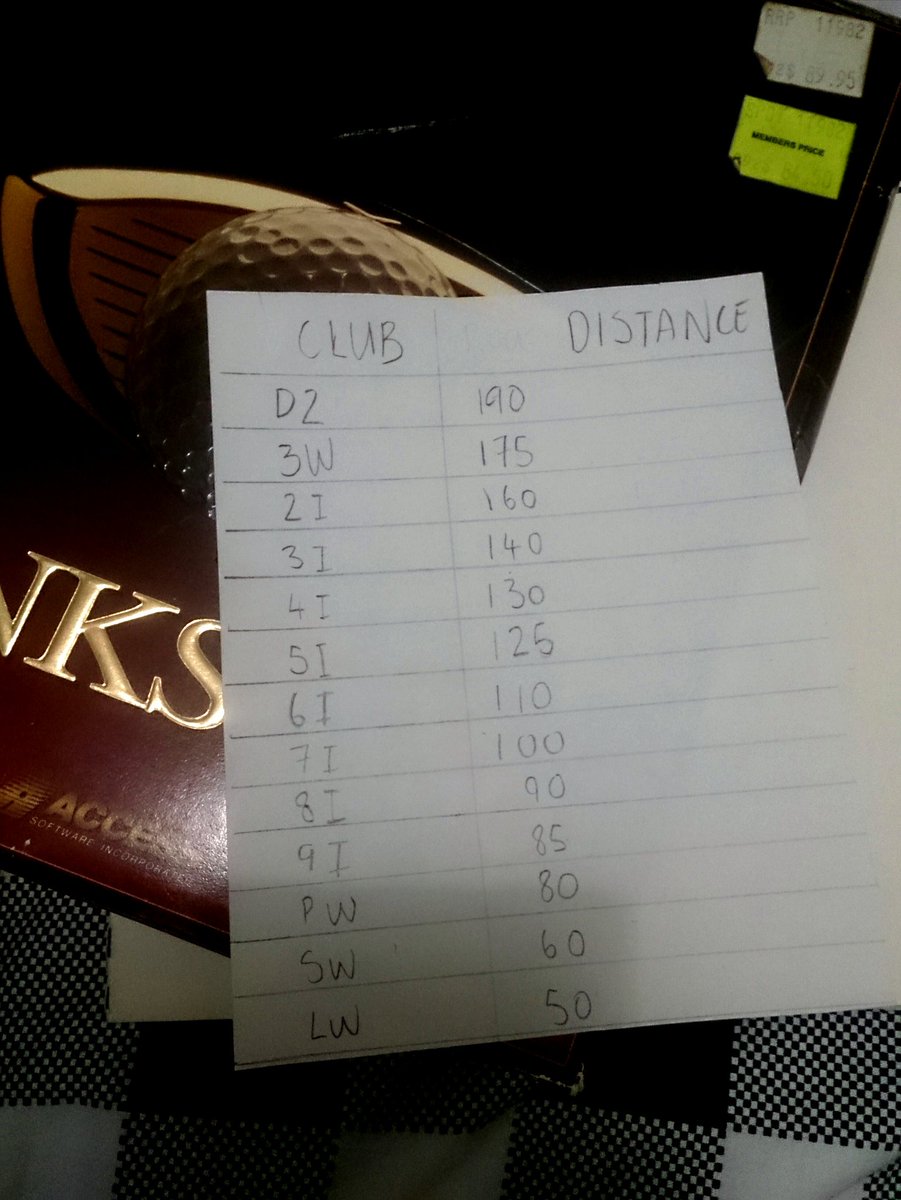 RRP 11982
89.95
MEMBERS PRICE
CLUB DISTANCE
D2 190
3W 175
2I 160
3I 140
4I 130
5I 125
6I 110
7I 100
8I 90
9I 85
PW 80
SW 60
LW 50
NKS
ACCE
SOFTWARE INCORPOR